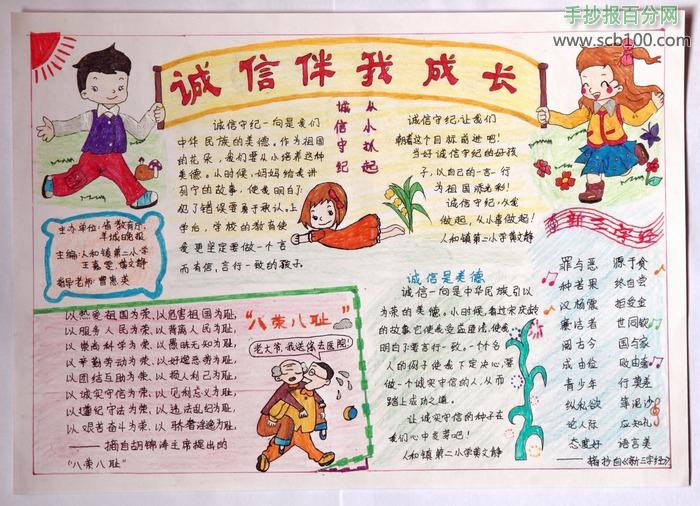 手抄报百分网
www.scb100.com
诚信伴我成长
从小抓起
诚信守纪
诚信守纪一向是我们
中华民族的美德。作为祖国
的花朵，我们要从小培养这种
美德。从小时候，妈妈给我讲
列宁的故事，使我明白了
犯了错误要勇于承认。上
学后，学校的教育使
我更坚定要做一个言
而有信，言行一致的孩子。
诚信守纪，让我们
朝着这个目标前进吧！
当好诚信守纪的好孩
子，以自己的一言一行
为祖国添光彩！
诚信守纪，从我
做起，从小事做起！
人和镇第二小学黄文静
主办单位：省教育厅、
羊城晚报
主编：人和镇第二小学
指导老师：曹惠英
以热爱祖国为荣、以危害祖国为耻，
以服务人民为荣、以背离人民为耻，
以崇尚科学为荣、以愚昧无知为耻，
以辛勤劳动为荣、以好逸恶劳为耻，
以团结互助为荣、以损人利己为耻，
以诚实守信为荣、以见利忘义为耻，
以遵纪守法为荣、以违法乱纪为耻，
以艰苦奋斗为荣、以骄奢淫逸为耻。
——摘自胡锦涛主席提出的
“八荣八耻”
“八荣八耻”
老大爷，我送你去医院！
诚信是美德
诚信一向是中华民族引以
为荣的美德。小时候，看过宋庆龄
的故事它使我受益匪浅，使我
明白了要言行一致。一个个名
人的例子使我下定决心，要
做一个诚实守信的人，从而
踏上成功之道。
让诚实守信的种子在
我们心中发芽吧！
人和镇第二小学黄文静
新三字经
罪与恶 源于贪
种苦果 终自尝
汉杨震 拒受金
廉洁者 世同钦
阅古今 国与家
成由俭 败由奢
青少年 行莫差
纵私欲
论人际 应知礼
态度好 语言美
——摘抄自《新三字经》